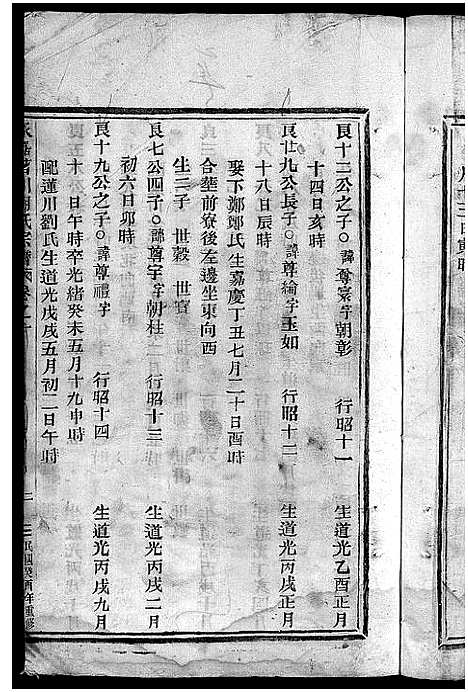 良十二公之子○諱尊寰字朝彰 行昭十一 生道光乙酉正月
十四日亥時
良廿九公長子○諱尊綸字玉如 行昭十二 生道光丙戌正月
十八日辰時
娶下鄭鄭氏生嘉慶丁丑七月二十日酉時
合葬前寮後左邊坐東向西
生二子 世穀 世官
良七公四子○諱尊宇字朝柱 行昭十三 生道光丙戌二月
初六日卯時
良十九公之子○諱尊禮字 行昭十四 生道光丙戌九月
十八日午時卒光緒癸未五月十九申時
配蓮川劉氏生道光戊戌五月初二日午時
氏宗譜 卷之十 民國癸酉年重修